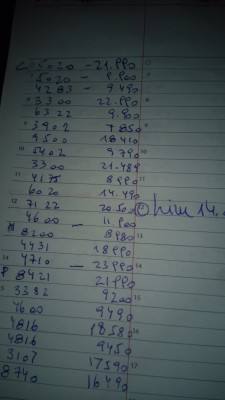 5020 - 21.990
5020 - 9.900
4283 - 9.490
3300 22.990
6322 9.900
3902 7850
9500 18410
5402 9790
3300 21.489
4175 8990
6020 14.490
7122
4600 11.900
8200 8980
4431 18990
4710 - 23990
8421 21990
3382 9200
4600 9490
4816 18580
4816 9450
3107 17590
8740 16490